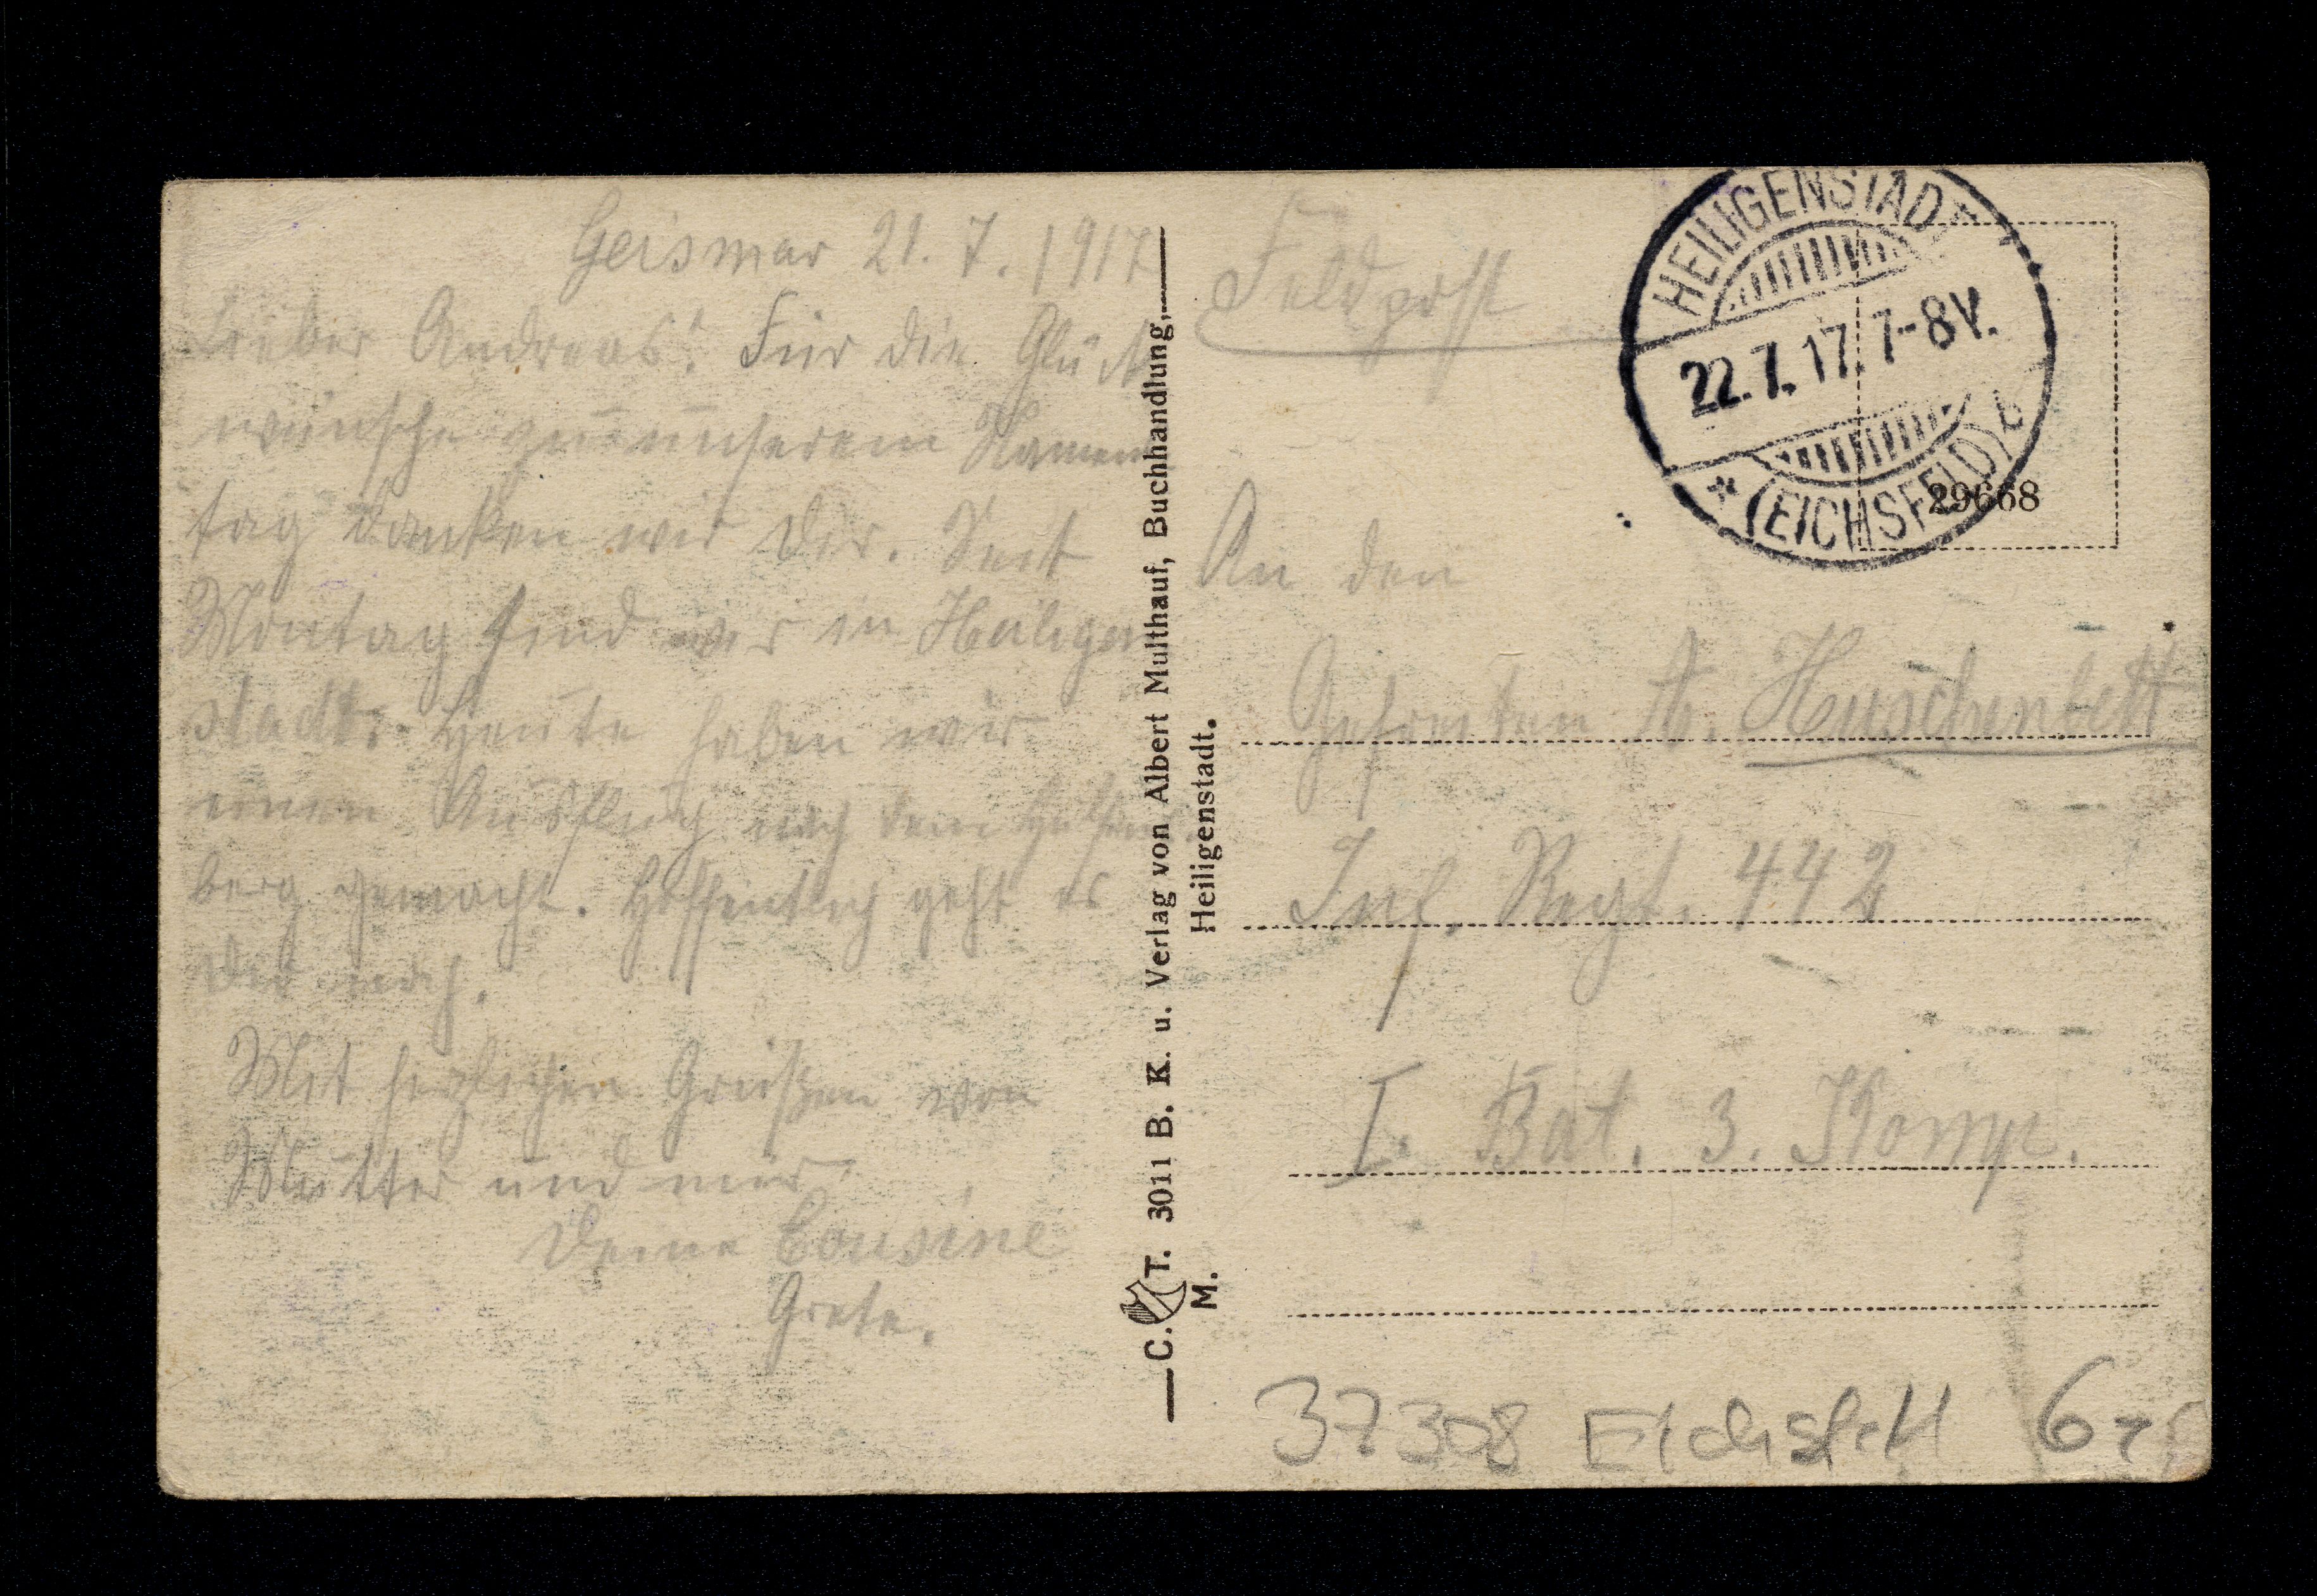 Geismar 21. 7. 1917
Lieber Andreas! Für die Glück
wünsche zu unserem Namens
tag danken wir Dir. Seit
Montag sind wir in Heiligen
stadt. Heute haben wir
einen Ausflug nach dem Hülfens
berg gemacht. Hoffentlich geht es
Dir noch.
Mit herzlichen Grüßen von
Mutter und mir
Deine Cousine
Grete.
C. T. 3011 B. K. u. Verlag von Albert Multhauf, Buchhandlung,
M. Heiligenstadt.
Feldpost
HEILIGENSTADT
22.7.17. 7-8V.
* (EICHSFELD) b
29668
An den
Gefreiten A. Huschenbett
Inf. Regt. 442
I. Bat. 3. Komp.
37308 Eichsfeld 6,-